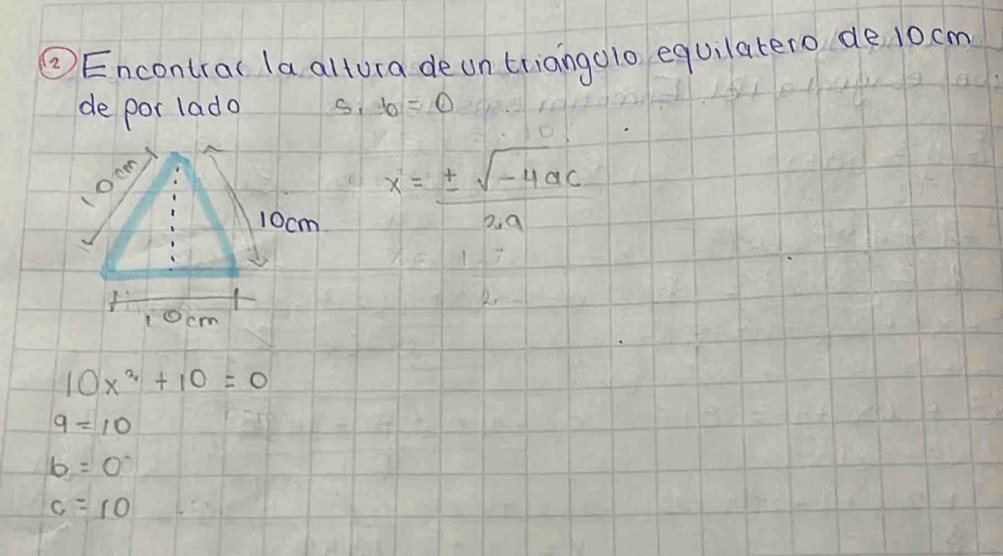 2 Encontrar la altura de un triángulo equilatero de 10 cm
de por lado si b = 0
10cm
10cm
10cm
x = ± √-4ac
2a
10x² + 10 = 0
a = 10
b = 0
c = 10